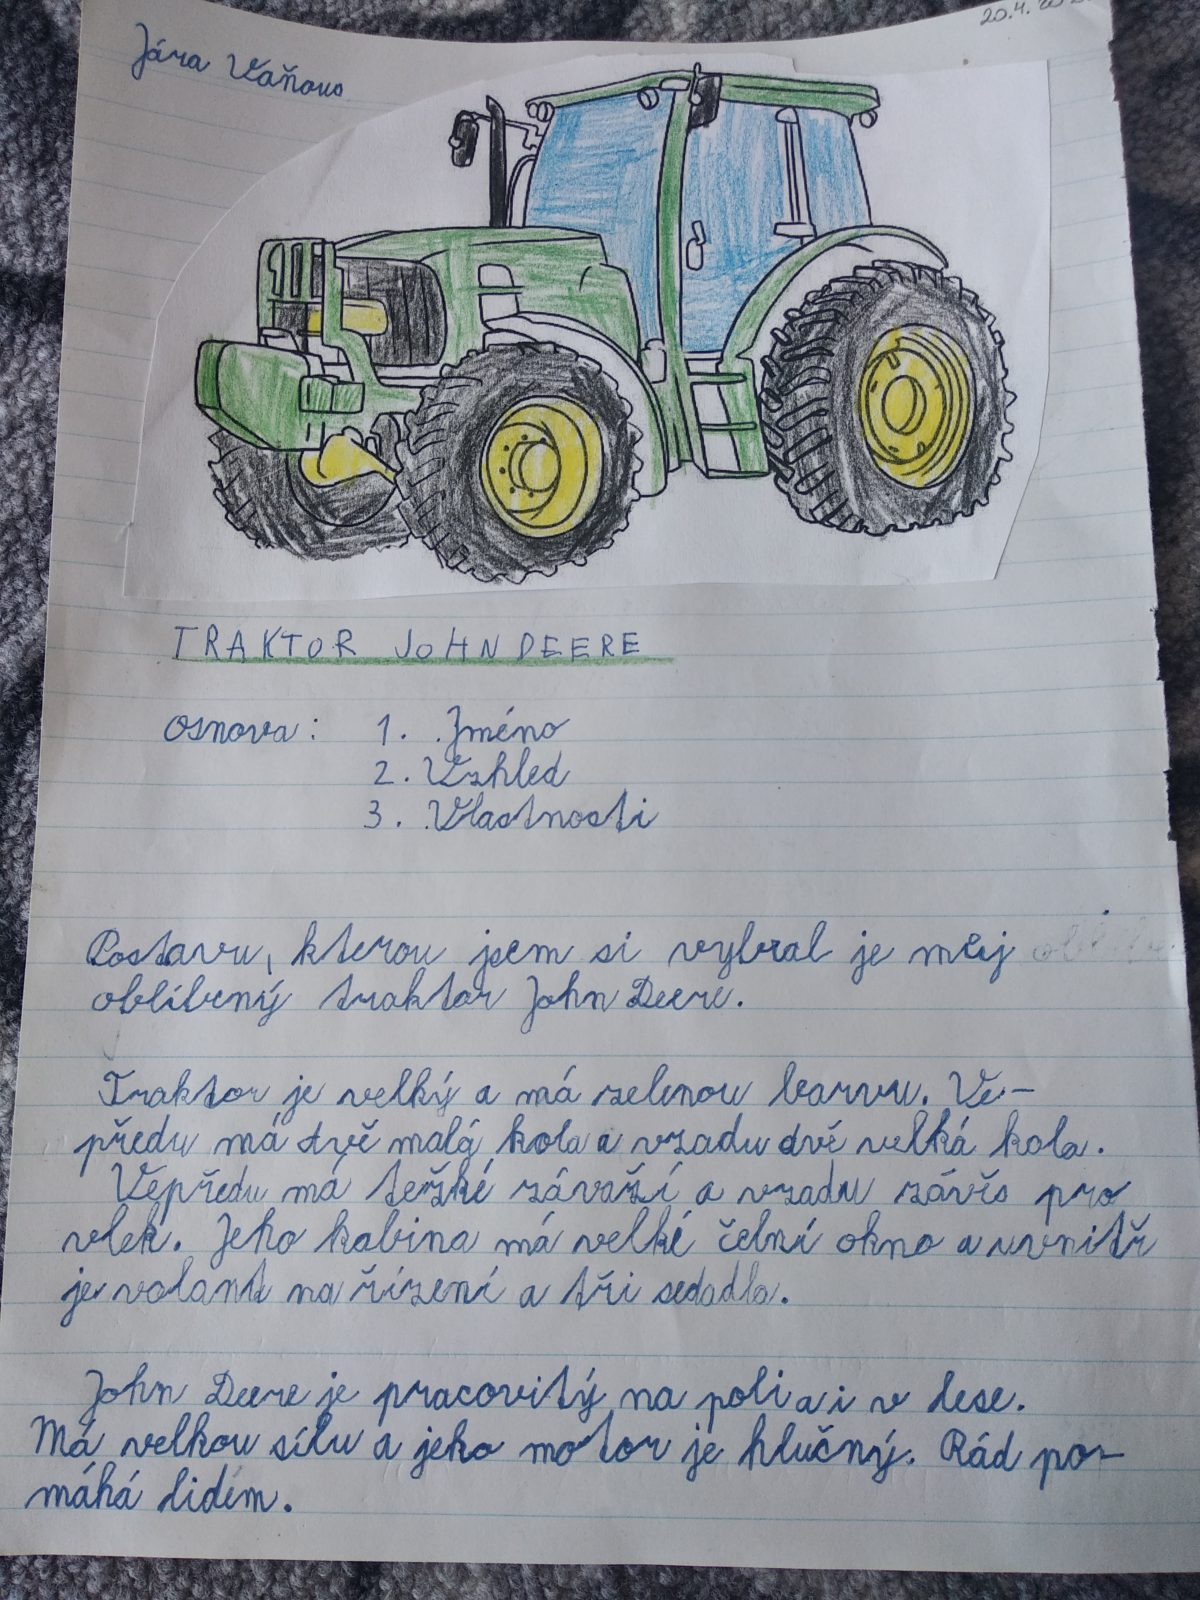 20.4.
Jára
TRAKTOR JOHN DEERE
Osnova: 1. Jméno
2. Vzhled
3. Vlastnosti
Postavu, kterou jsem si vybral je můj
oblíbený traktor John Deere.
Traktor je velký a má zelenou barvu. Ve-
předu má dvě malá kola a vzadu dvě velká kola.
Vepředu má težké závaží a vzadu závěs pro
vlek. Jeho kabina má velké čelní okno a uvnitř
je volant na řízení a tři sedadla.
John Deere je pracovitý na poli a i v lese.
Má velkou sílu a jeho motor je hlučný. Rád po-
máhá lidem.